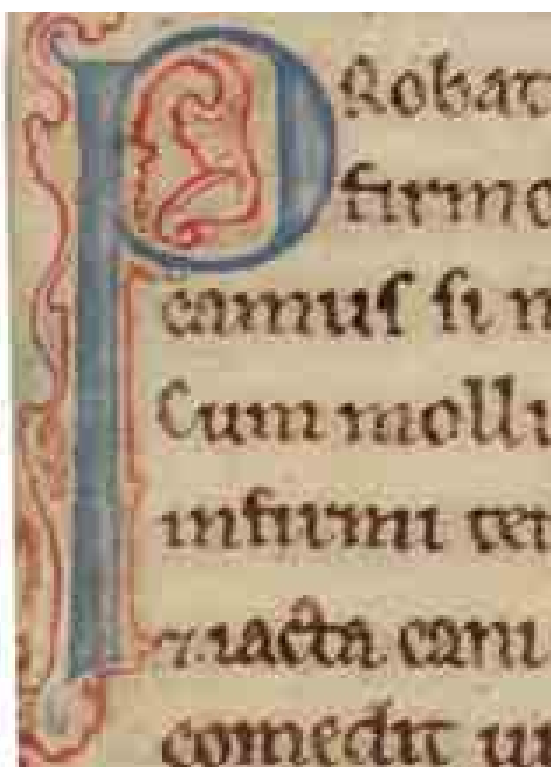 PRobat
firmo
camus si n
Cum molli
infirmi ter
⁊ iacta cani
comedit un